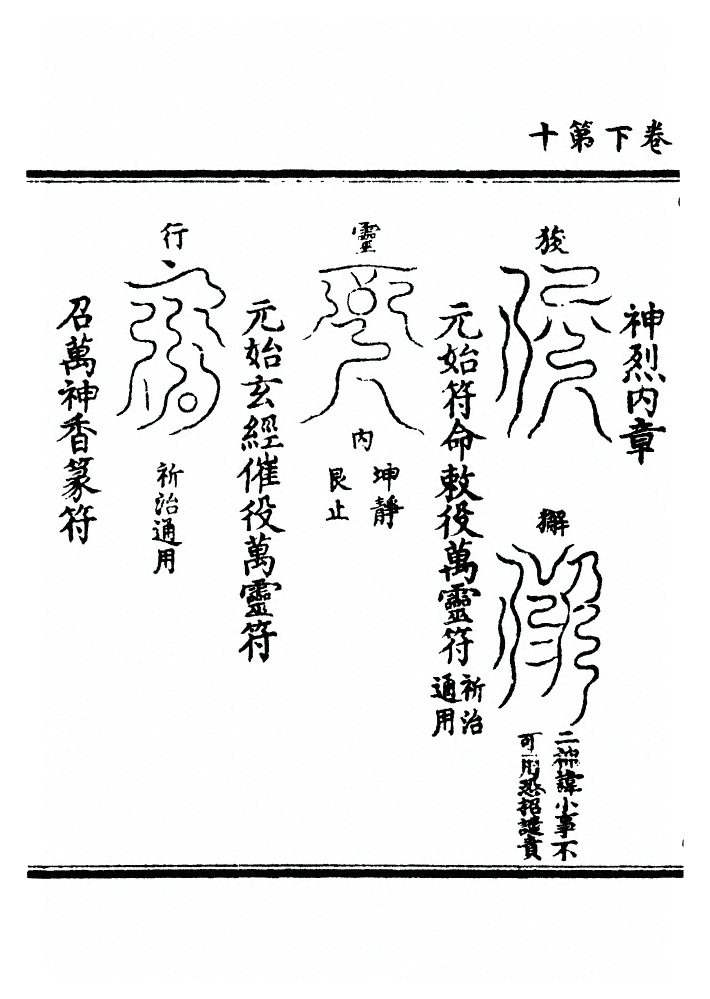 卷下第十
神烈內章
狻
獬
二神諱小事不
可用恐招譴責
元始符命敕役萬靈符
祈治
通用
靈
內
坤靜
艮止
元始玄經催役萬靈符
行
祈治通用
召萬神香篆符